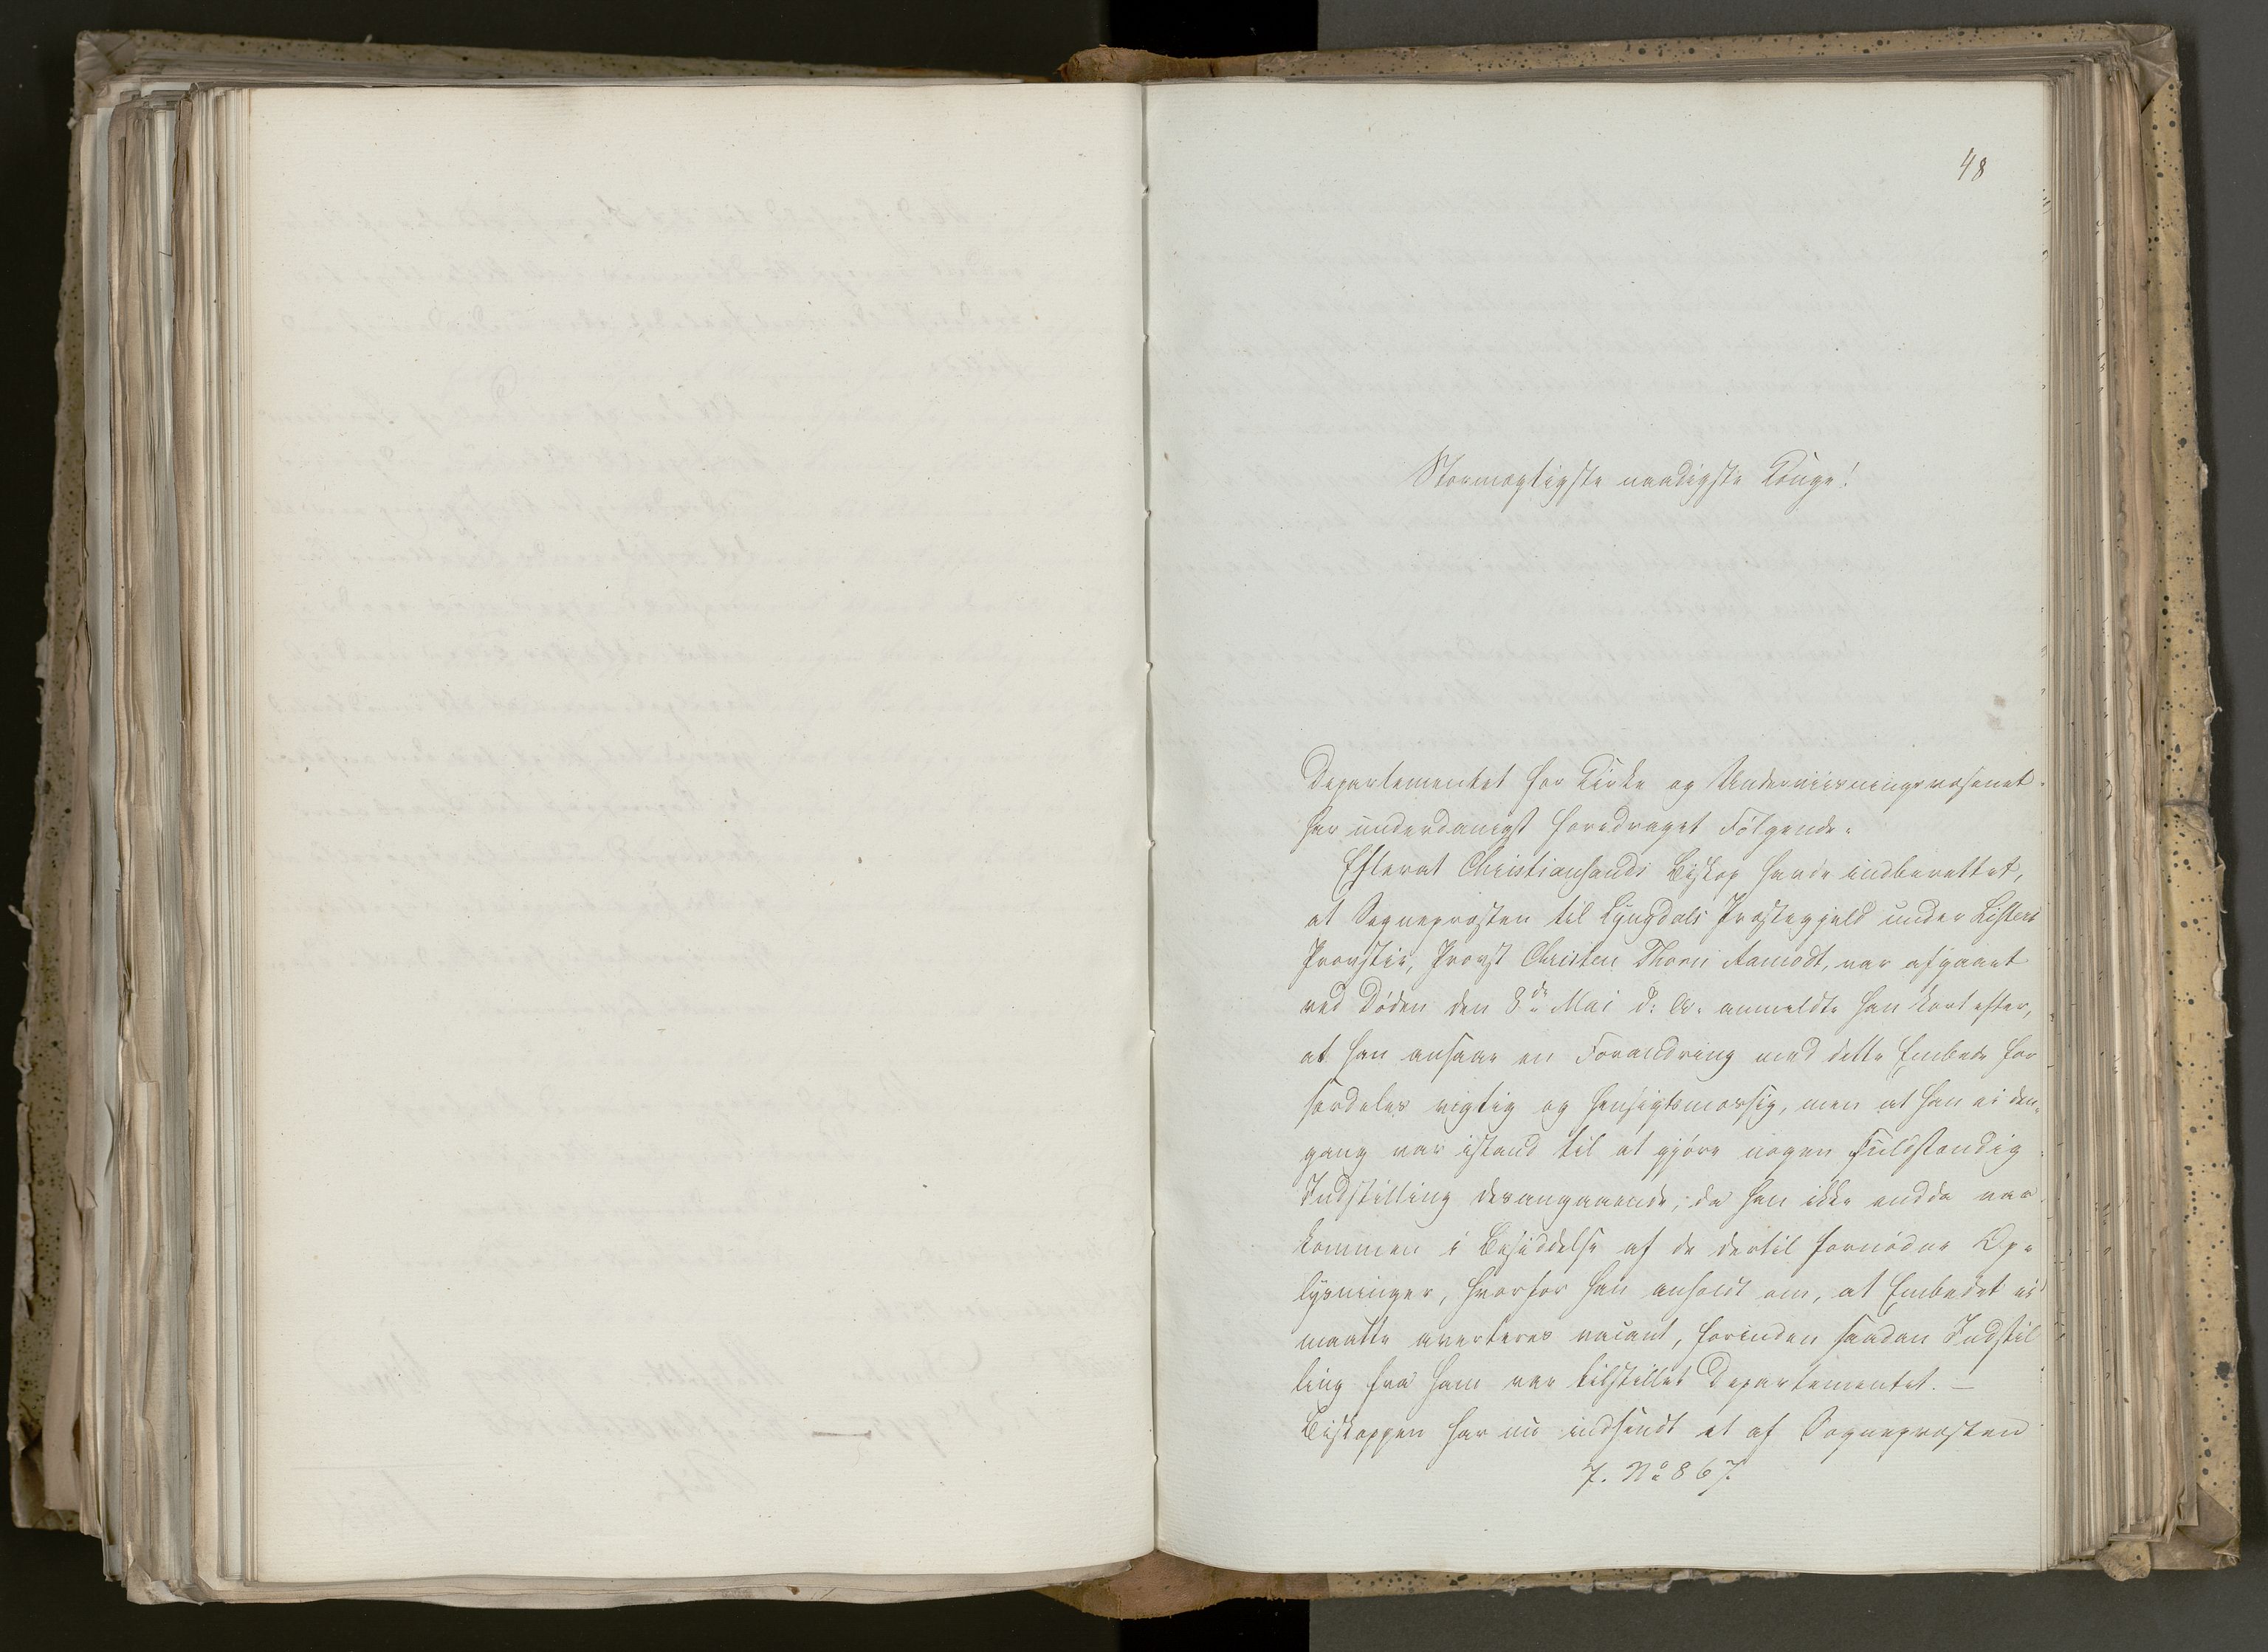 48
Stormægtigste naadigste Konge!
Departementet for Kirke og Underviisningsvæsenet
har underdanigst foredraget Følgende:
Efterat Christiansands Biskop havde indberettet,
at Sognepræsten til Lyngdals Præstegjeld under Listers
Provstie, Provst Christen Thorn Aamodt, var afgaaet
ved Døden den 8de Mai d. A. anmeldte han kort efter,
at han ansaae en Forandring med dette Embede for
særdeles vigtig og hensigtsmæssig, men at han ei den-
gang var istand til at gjøre nogen fuldstændig
Indstilling desangaaende, da han ikke endda var
kommen i Besiddelse af de dertil fornødne Op-
lysninger, hvorfor han anholdt om, at Embedet ei
maatte averteres vacant, forinden saadan Indstil
ling fra ham var tilstillet Departementet. —
Biskoppen har nu indsendt et af Sognepræsten
7. No 867.